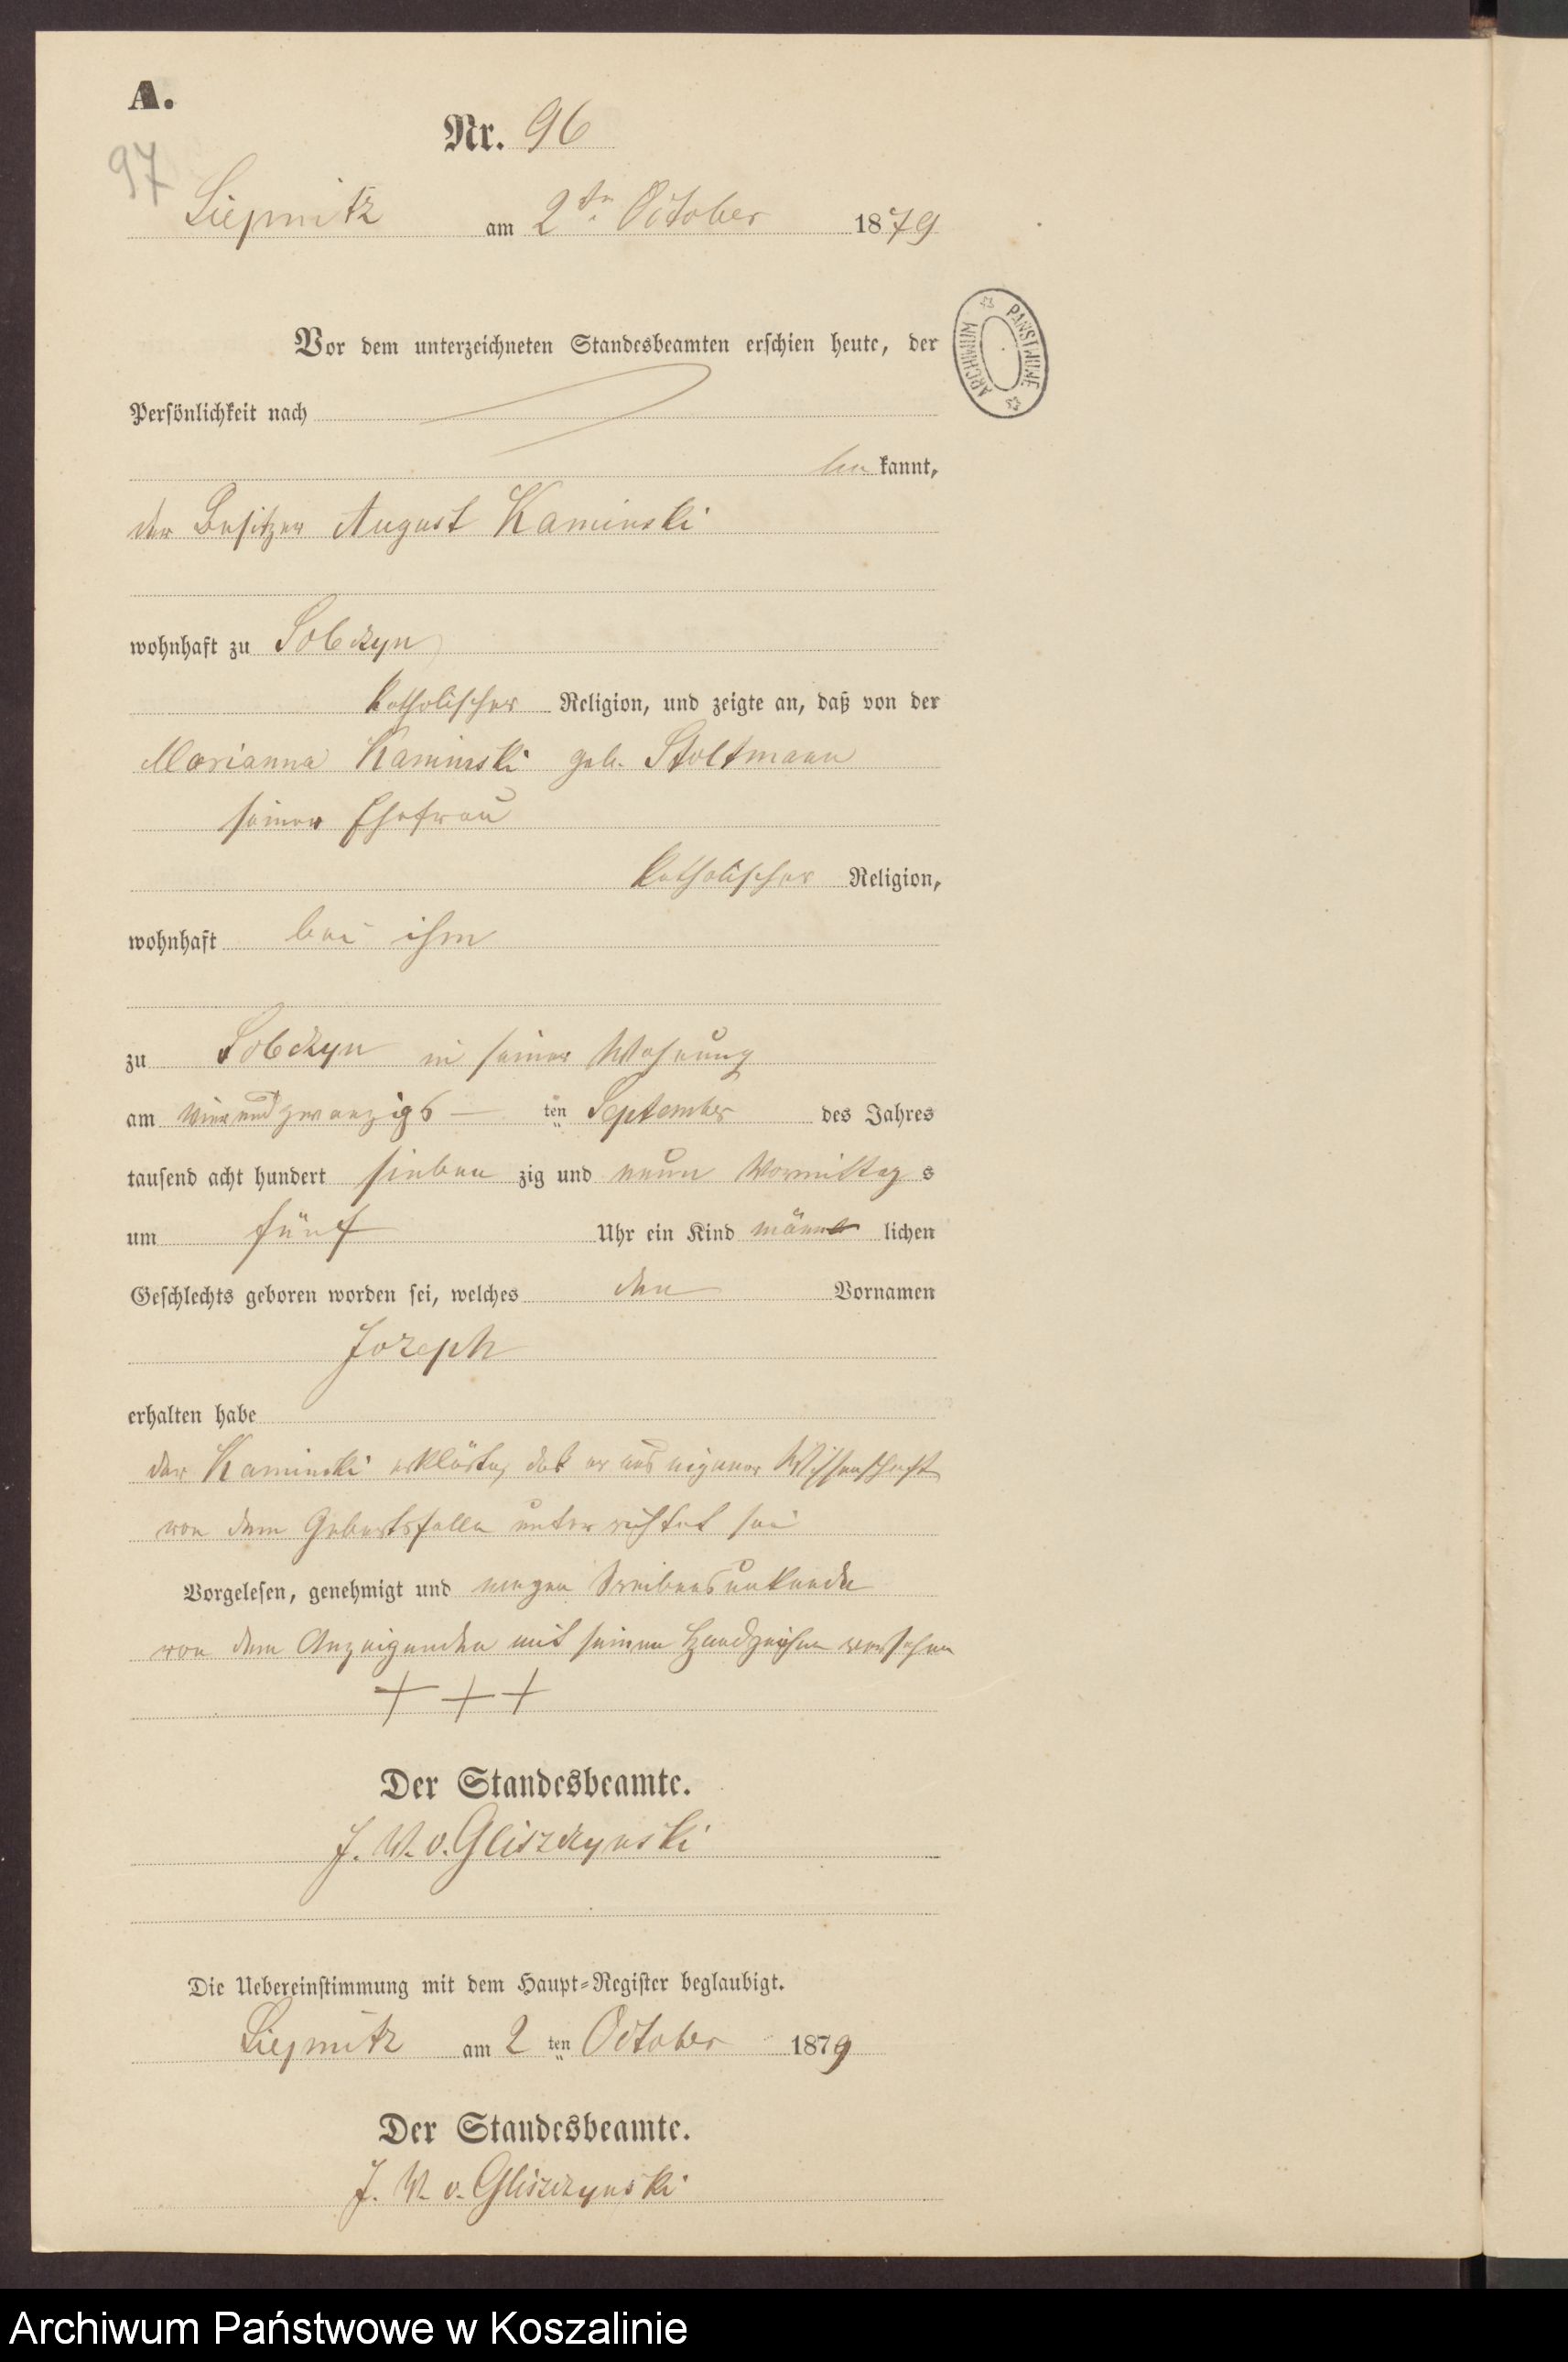 A.
Nr. 96
97
Liepnitz am 2ten October 1879
Vor dem unterzeichneten Standesbeamten erschien heute, der
Persönlichkeit nach
be kannt,
der Besitzer August Kaminski
wohnhaft zu Sobczyn
katholischer Religion, und zeigte an, daß von der
Marianna Kaminski geb. Stoltmann
seiner Ehefrau
katholischer Religion,
wohnhaft bei ihm
zu Sobczyn in seiner Wohnung
am vierundzwanzigs ten September des Jahres
tausend acht hundert sieben zig und neun Vormittag s
um fünf Uhr ein Kind männ lichen
Geschlechts geboren worden sei, welches den Vornamen
Jozeph
erhalten habe
der Kaminski erklärte, daß er aus eigener Wissenschaft
von dem Geburtsfalle unterrichtet sei
Vorgelesen, genehmigt und wegen Schreibensunkunde
von dem Anzeigenden mit seinen Handzeichen versehen
+ + +
Der Standesbeamte.
J. W. v. Gliszczynski
Die Uebereinstimmung mit dem Haupt-Register beglaubigt.
Liepnitz am 2 ten October 1879
Der Standesbeamte.
J. W. v. Gliszczynski
ARCHIWUM PAŃSTWOWE
Archiwum Państwowe w Koszalinie